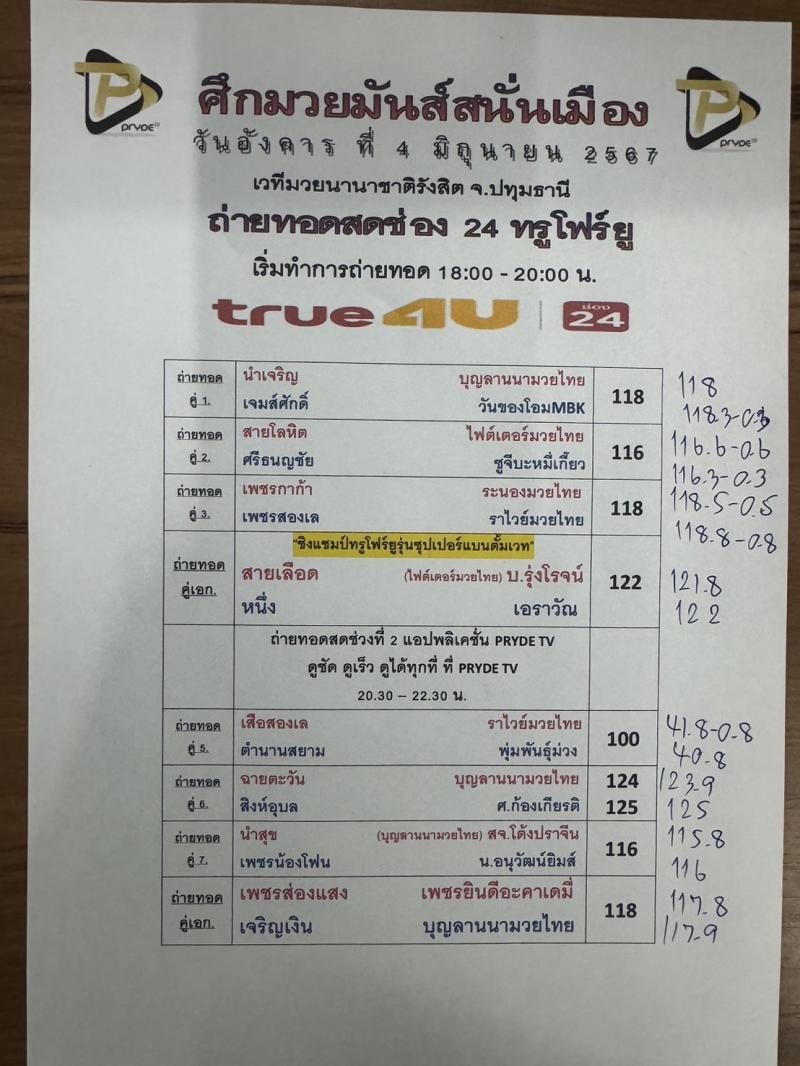 PRYDE TV
ศึกมวยมันส์สนั่นเมือง
PRYDE TV
วันอังคาร ที่ 4 มิถุนายน 2567
เวทีมวยนานาชาติรังสิต จ.ปทุมธานี
ถ่ายทอดสดช่อง 24 ทรูโฟร์ยู
เริ่มทำการถ่ายทอด 18:00 - 20:00 น.
true4U ช่อง 24
ถ่ายทอด นำเจริญ บุญลานนามวยไทย 118 118
คู่ 1. เจมส์ศักดิ์ วันของโอมMBK 118.3-0.3
ถ่ายทอด สายโลหิต ไฟต์เตอร์มวยไทย 116 116.6-0.6
คู่ 2. ศรีธนญชัย ซูจีบะหมี่เกี๊ยว 116.3-0.3
ถ่ายทอด เพชรกาก้า ระนองมวยไทย 118 118.5-0.5
คู่ 3. เพชรสองเล ราไวย์มวยไทย 118.8-0.8
"ชิงแชมป์ทรูโฟร์ยูรุ่นซุปเปอร์แบนตั้มเวท"
ถ่ายทอด สายเลือด (ไฟต์เตอร์มวยไทย) บ.รุ่งโรจน์ 122 121.8
คู่เอก. หนึ่ง เอราวัณ 122
ถ่ายทอดสดช่วงที่ 2 แอปพลิเคชั่น PRYDE TV
ดูชัด ดูเร็ว ดูได้ทุกที่ ที่ PRYDE TV
20.30 – 22.30 น.
ถ่ายทอด เสือสองเล ราไวย์มวยไทย 100 41.8-0.8
คู่ 5. ตำนานสยาม พุ่มพันธุ์ม่วง 40.8
ถ่ายทอด ฉายตะวัน บุญลานนามวยไทย 124 123.9
คู่ 6. สิงห์อุบล ศ.ก้องเกียรติ 125 125
ถ่ายทอด นำสุข (บุญลานนามวยไทย) สจ.โต้งปราจีน 116 115.8
คู่ 7. เพชรน้องโฟน น.อนุวัฒน์ยิมส์ 116
ถ่ายทอด เพชรส่องแสง เพชรยินดีอะคาเดมี่ 118 117.8
คู่เอก. เจริญเงิน บุญลานนามวยไทย 117.9